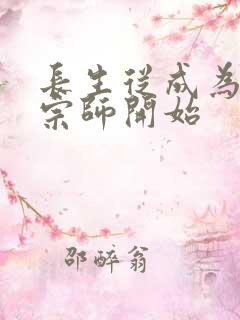 長生從成為
宗師開始
邵醉翁